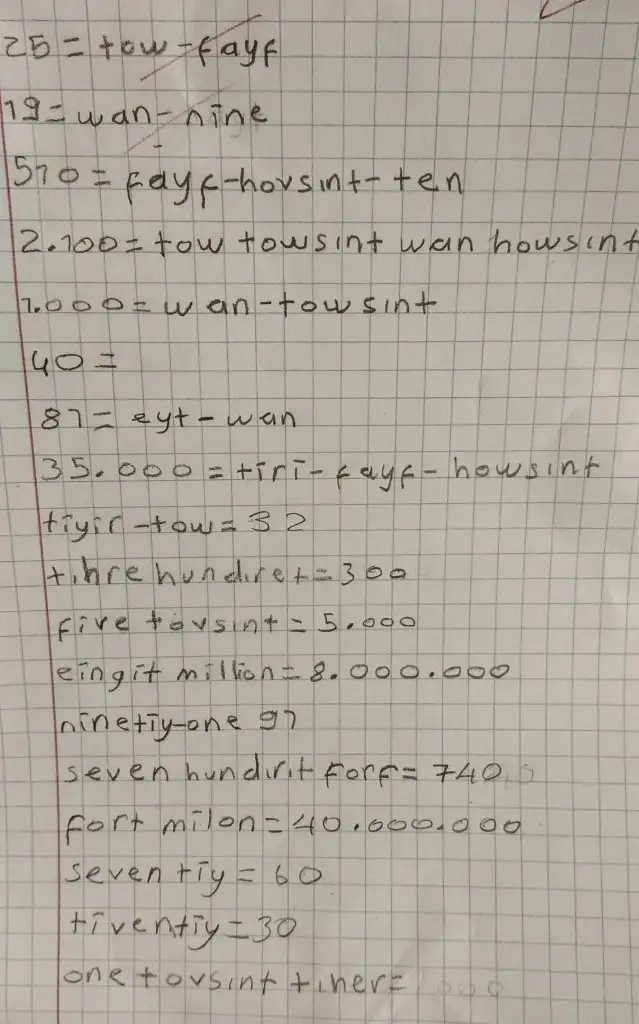 25 = tow-fayf
19 = wan-nine
510 = fayf-hovsint-ten
2.100 = tow towsint wan howsint
1.000 = wan-towsint
40 =
81 = eyt-wan
35.000 = tiri-fayf-howsint
tiyir-tow = 32
tihre hundiret = 300
five tovsint = 5.000
eingit million = 8.000.000
ninetiy-one 91
seven hundirit forf = 740
fort milon = 40.000.000
seventiy = 60
tiventiy = 30
one tovsint tiher =